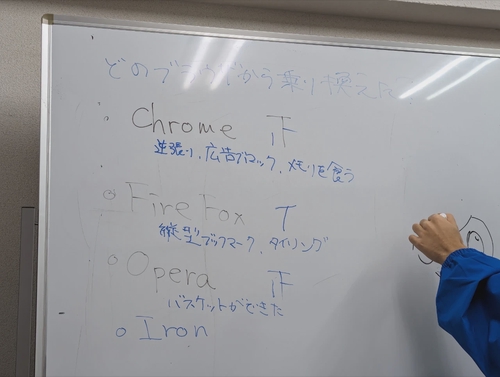 どのブラウザから乗り換えた
Chrome 正
逆張り、広告ブロック、メモリを食う
FireFox T
縦型ブックマーク、タイリング
Opera 正
バスケットができた
Iron